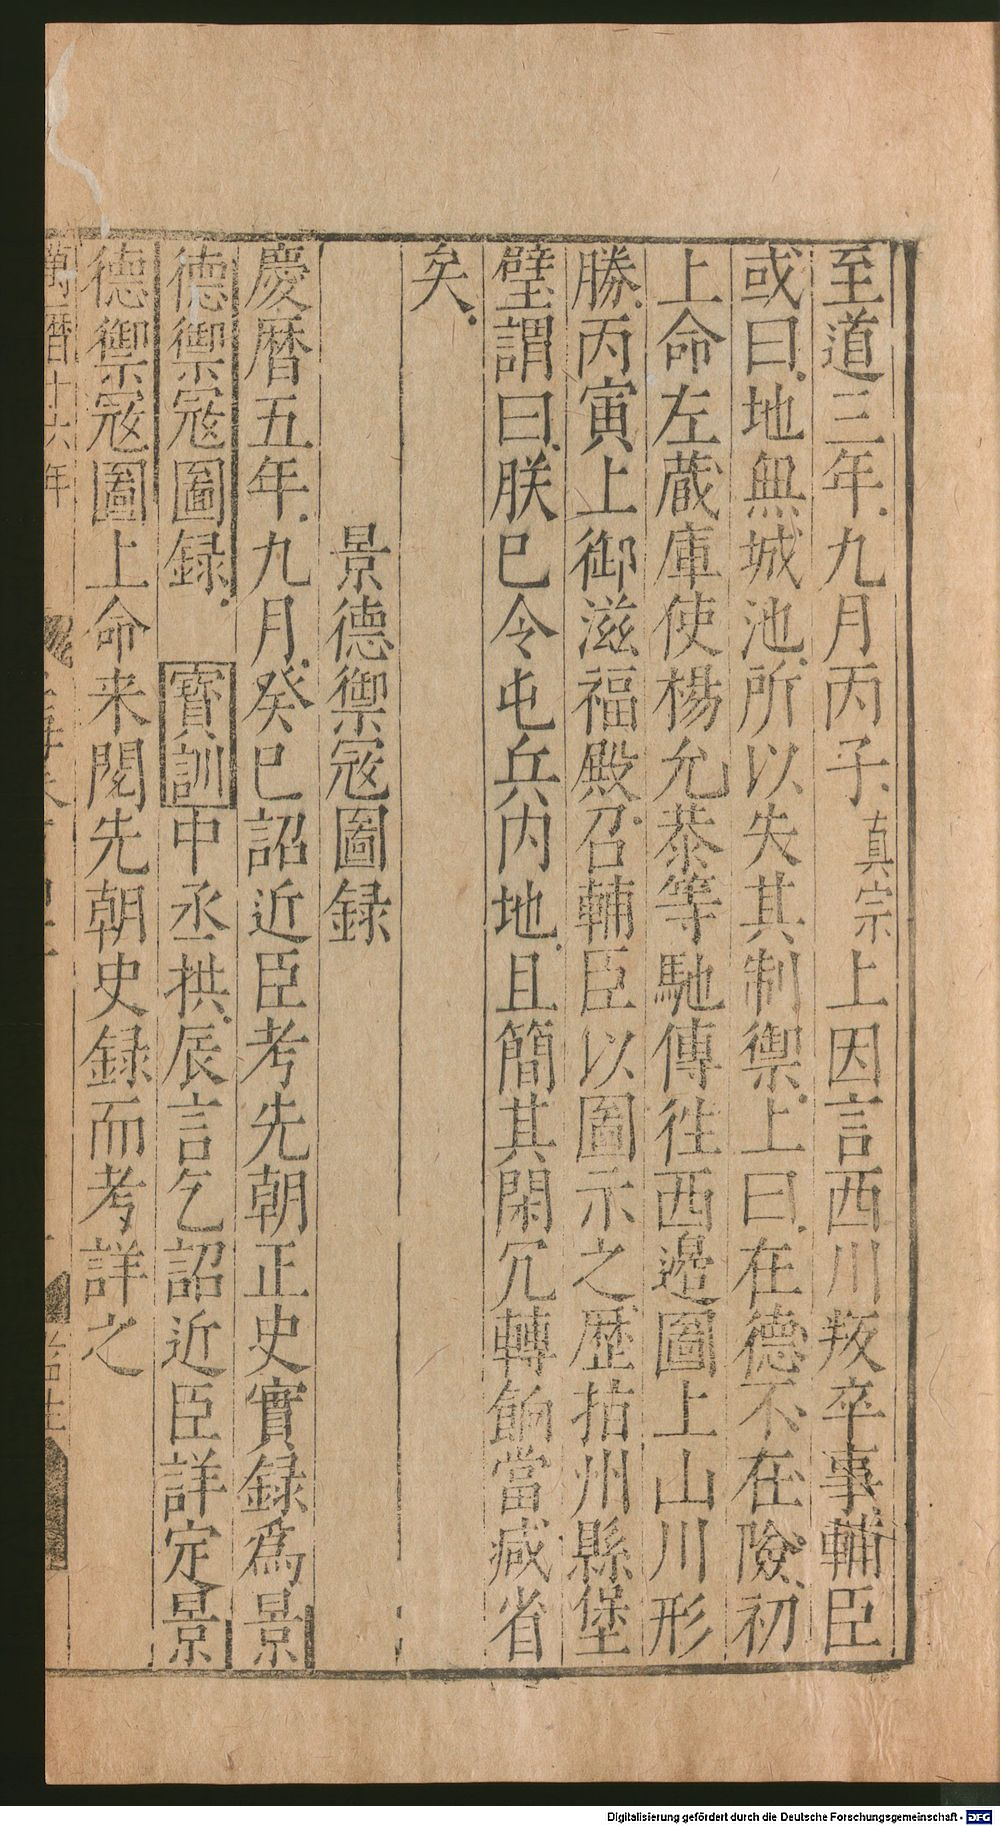 至道三年九月丙子真宗上因言西川叛卒事輔臣
或曰地無城池所以失其制禦上曰在德不在險初
上命左藏庫使楊允恭等馳傳徃西邊圖上山川形
勝丙寅上御滋福殿召輔臣以圖示之歷指州縣堡
壁謂曰朕已令屯兵內地且簡其閑冗轉餉當减省
矣
景德禦寇圖録
慶曆五年九月癸巳詔近臣考先朝正史實録爲景
德禦寇圖録 寳訓中丞拱辰言乞詔近臣詳定景
德禦寇圖上命来閱先朝史録而考詳之
萬曆十六年
Digitalisierung gefördert durch die Deutsche Forschungsgemeinschaft - DFG